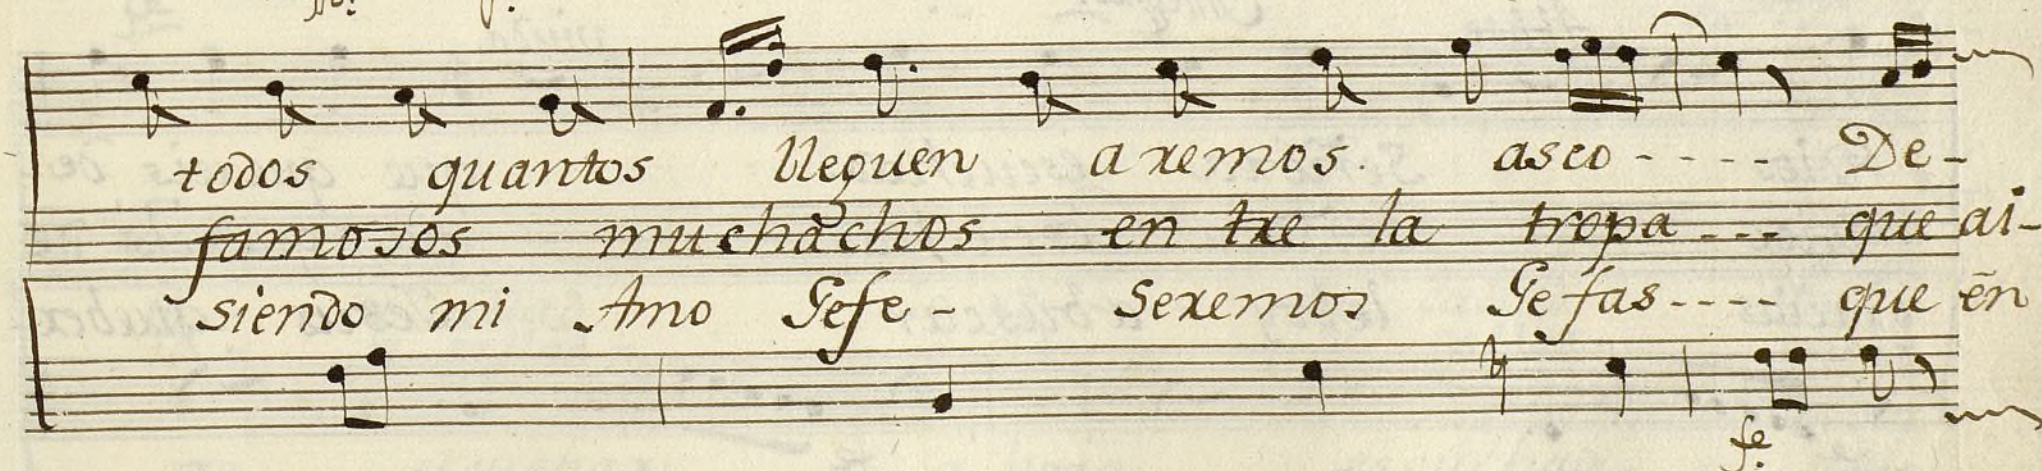 todos quantos lleguen aremos. asco - - - - - De-
famosos muchachos en tre la tropa - - - que ai-
siendo mi Amo Gefe - Seremos Gefas - - - - que en
fe.